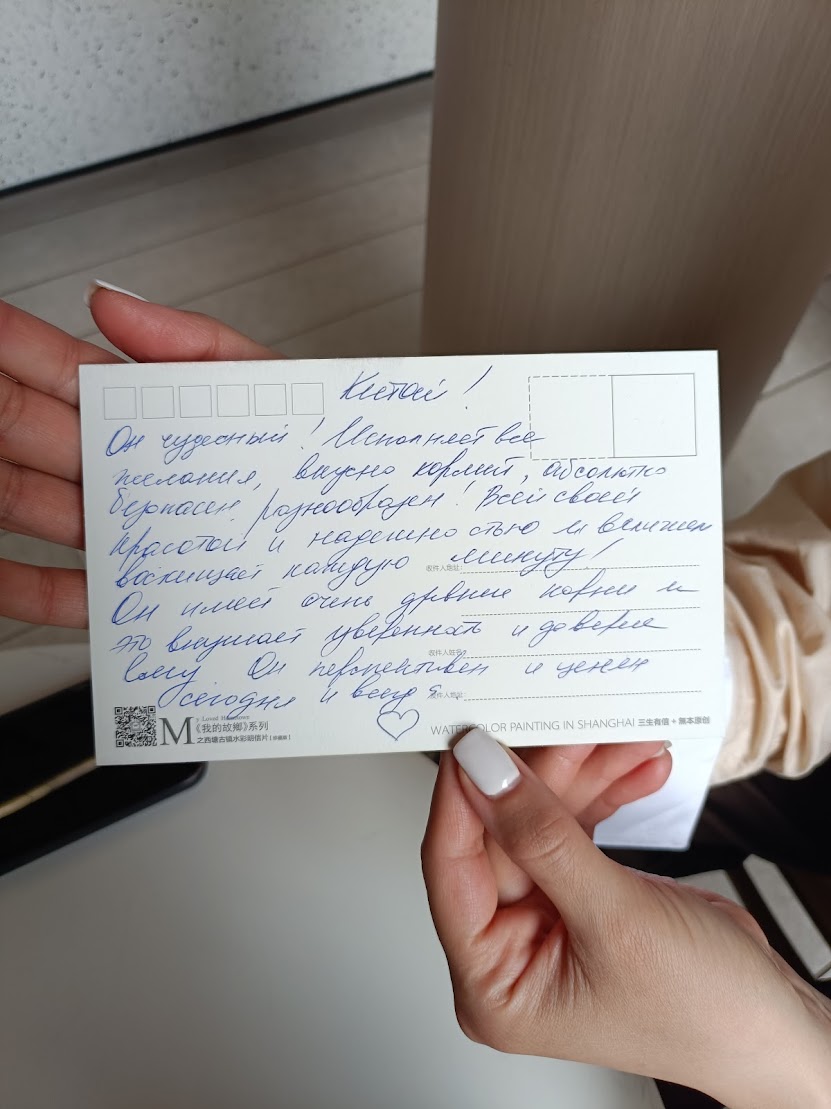 Китай!
Он чудесный! Исполняет все
желания, вкусно кормит, абсолютно
безопасен, разнообразен! Всей своей
красотой и надежностью и величием
восхищает каждую минуту!
收件人地址:
Он имеет очень древние корни и
это внушает уверенность и доверие
收件人姓名:
ему Он перспективен и ценен
сегодня и всегда.
收件人地址:
My Loved Hometown
《我的故鄉》系列
之西塘古镇水彩明信片
WATERCOLOR PAINTING IN SHANGHAI 三生有信 + 無本原创